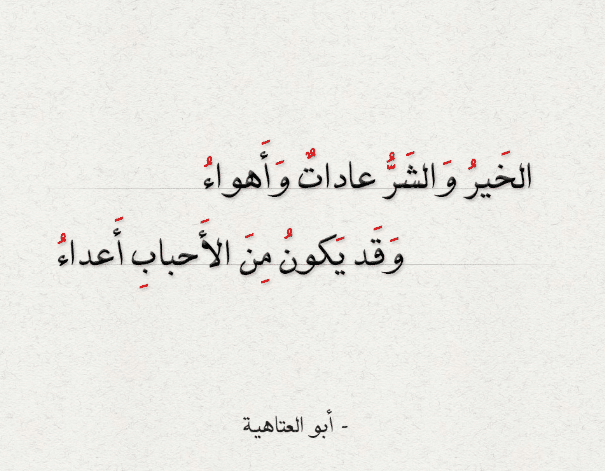 الخَيرُ وَالشَرُّ عاداتٌ وَأَهواءُ
وَقَد يَكونُ مِنَ الأَحبابِ أَعداءُ
- أبو العتاهية